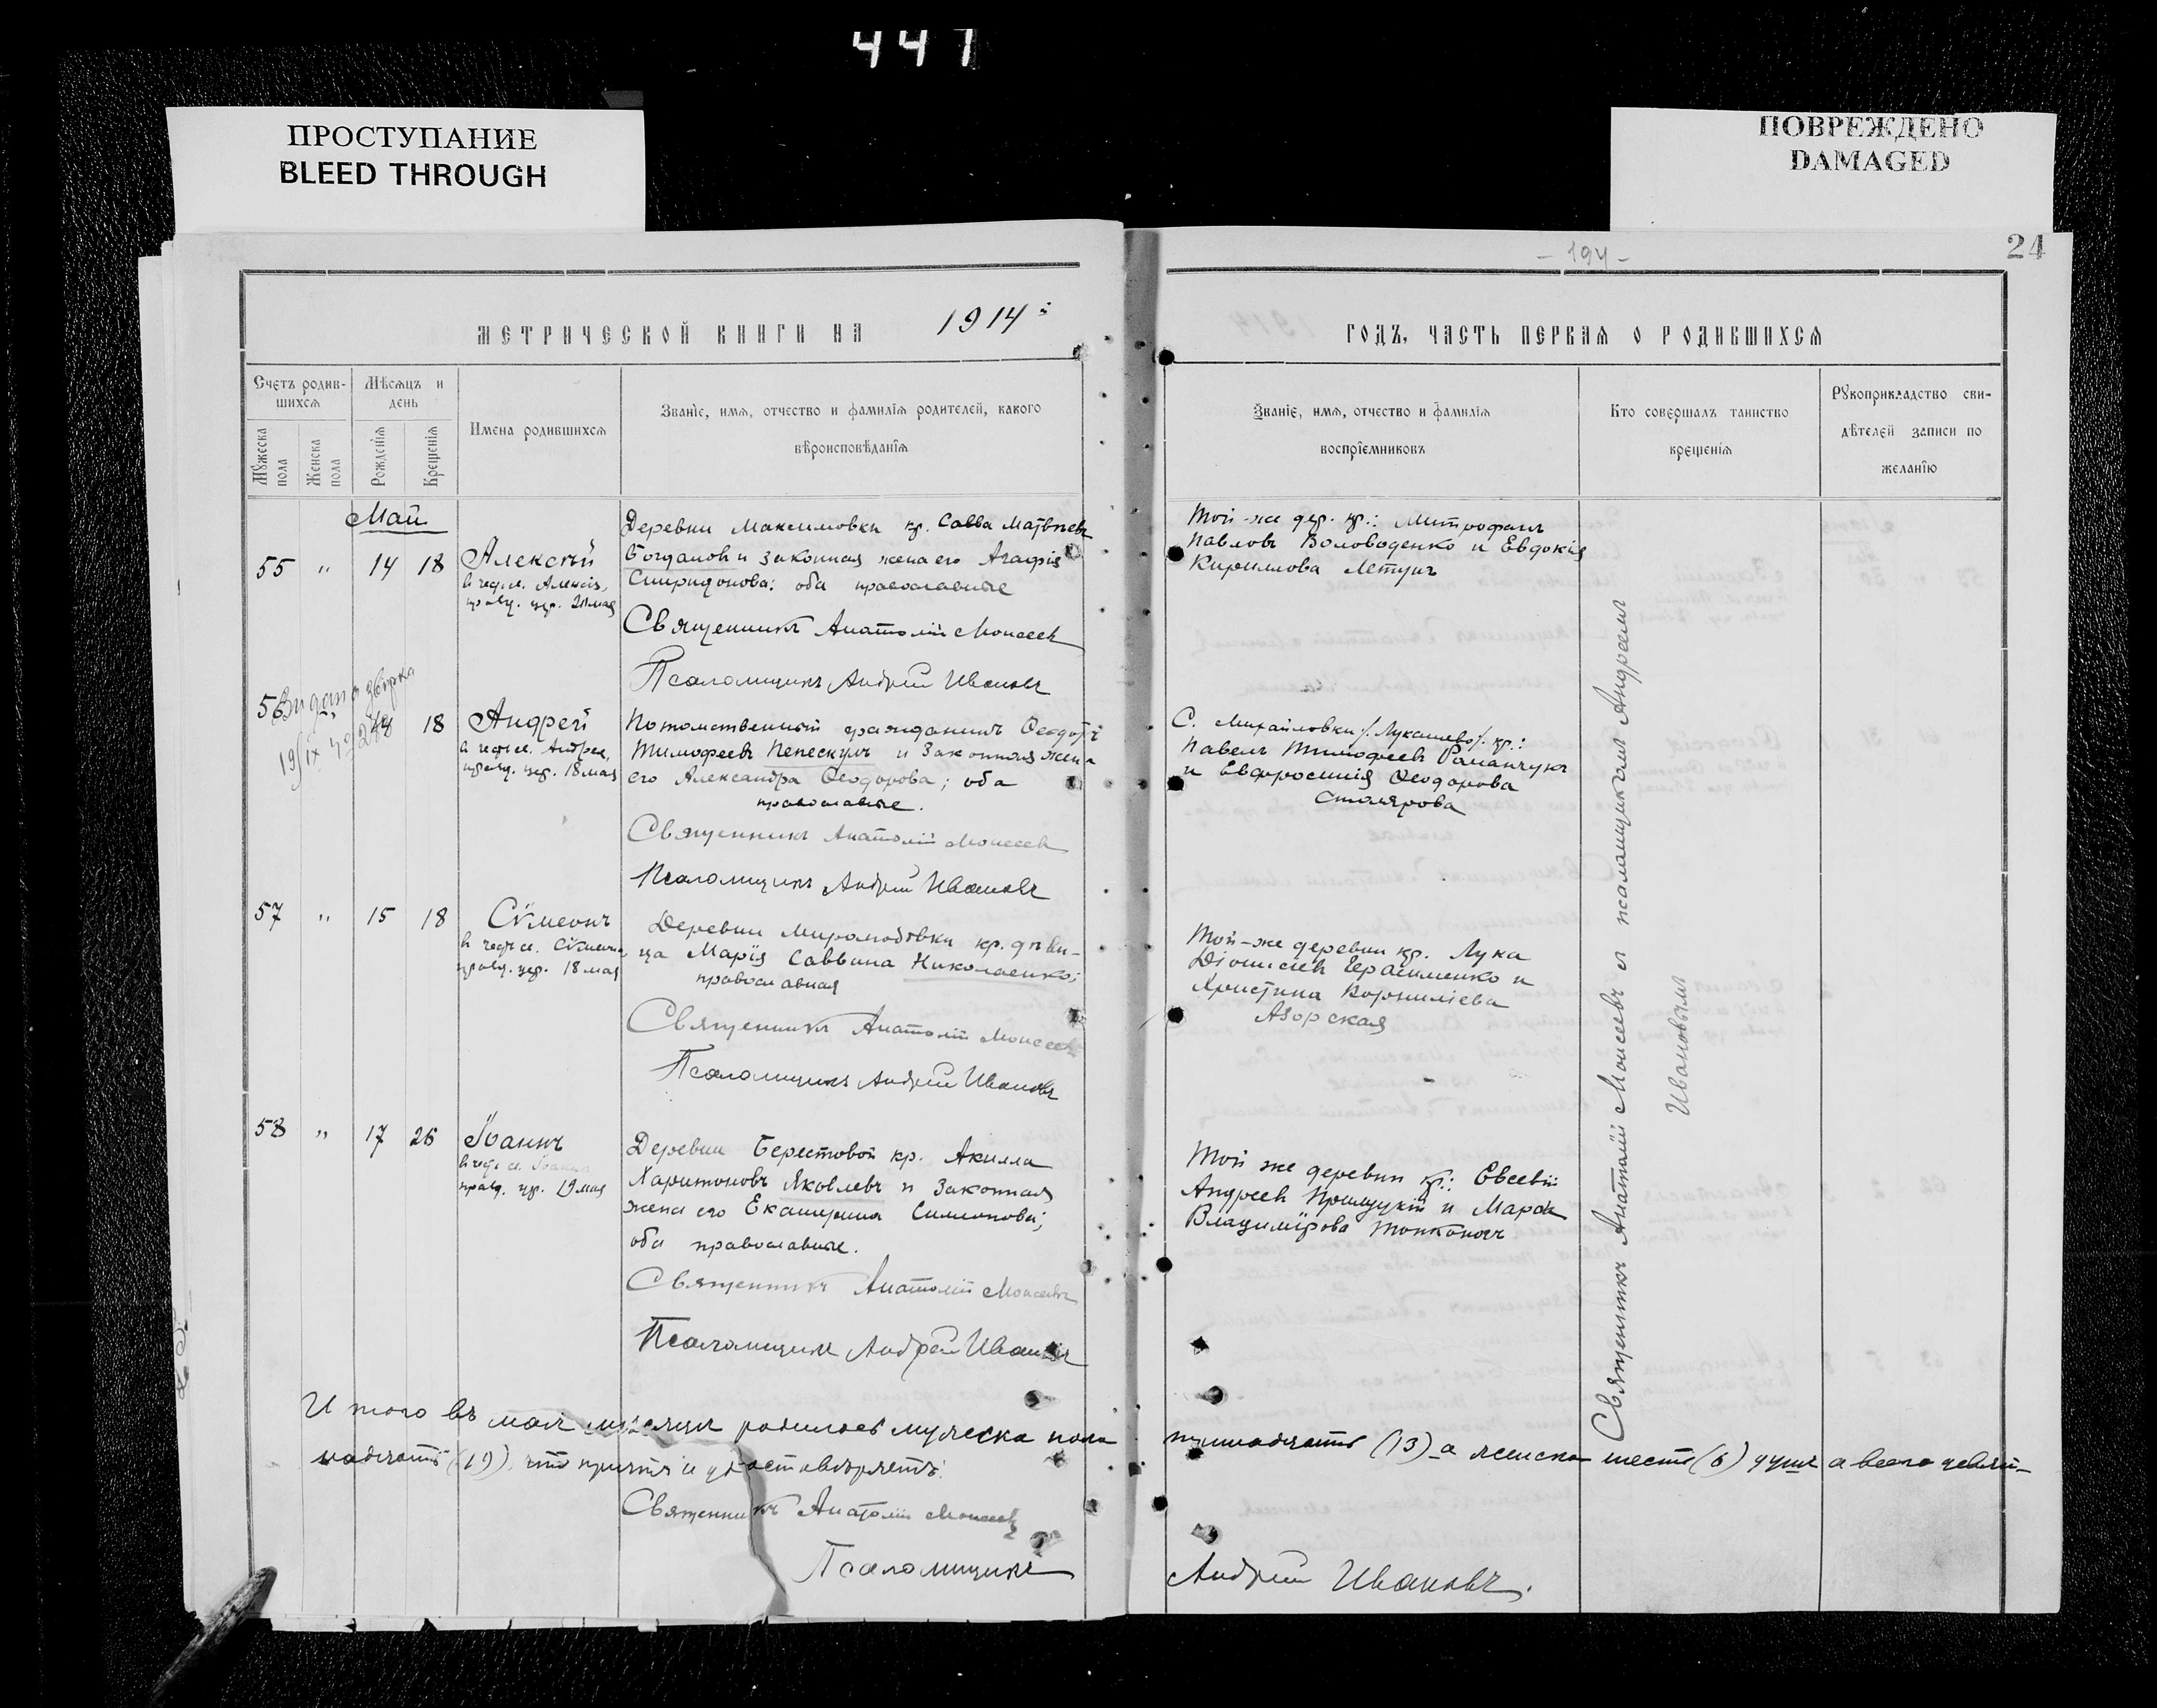 447
ПРОСТУПАНИЕ
BLEED THROUGH
ПОВРЕЖДЕНО
DAMAGED
- 194 -
24
МЕТРИЧЕСКОЙ КНИГИ НА 1914
ГОДЪ, ЧАСТЬ ПЕРВАЯ О РОДИВШИХСЯ
Счетъ родив-
шихся
Мѣсяцъ и
день
Мужеска
пола
Женска
пола
Рожденія
Крещенія
Имена родившихся
Званіе, имя, отчество и фамилія родителей, какого
вѣроисповѣданія
Званіе, имя, отчество и фамилія
воспріемниковъ
Кто совершалъ таинство
крещенія
Рукоприкладство сви-
дѣтелей записи по
желанію
Май
55 " 14 18
Алексѣй
в честь св. Алексія,
празд. цер. 20 мая
Деревни Максимовки кр. Савва Матвѣевъ
Богдановъ и законная жена его Агафія
Спиридонова: оба православные
Священникъ Анатолій Моисеевъ
Псаломщикъ Андрей Ивановъ
Той-же дер. кр.: Митрофанъ
Павловъ Воловоденко и Евдокія
Кириллова Летучъ
56 18
Андрей
в честь св. Андрея,
празд. цер. 18 мая
Потомственный гражданинъ Ѳеодотъ
Тимофеевъ Пепескулъ и Законная жена
его Александра Ѳеодорова; оба
православные.
Священникъ Анатолій Моисеевъ
Псаломщикъ Андрей Ивановъ
С. Михайловки /Лукашево/ кр.:
Павелъ Тимофеевъ Романчукъ
и Евфросинія Ѳеодорова
Столярова
57 " 15 18
Сѵмеонъ
в честь св. Сѵмеона
празд. цер. 18 мая
Деревни Миролюбовки кр. дѣви-
ца Марія Саввина Николаенко;
православная
Священникъ Анатолій Моисеевъ
Псаломщикъ Андрей Ивановъ
Той-же деревни кр. Лука
Діонисіевъ Герасименко и
Христина Корниліева
Азорская
58 " 17 26
Іоаннъ
в честь св. Іоанна
празд. цер. 19 мая
Деревни Берестовой кр. Акилла
Харитоновъ Яковлевъ и Законная
жена его Екатерина Симеонова;
оба православные.
Священникъ Анатолій Моисеевъ
Псаломщикъ Андрей Ивановъ
Той же деревни кр.: Евсевій
Андреевъ и Марѳа
Владимірова
Священникъ Анатолій Моисеевъ и псаломщикомъ Андреемъ
Ивановымъ
Итого въ маѣ мѣсяцѣ родилось мужеска пола тринадцать (13) а женска шесть (6) душъ а всего девят-
надцать (19) что причтъ и удостовѣряетъ:
Священникъ Анатолій Моисеевъ
Псаломщикъ Андрей Ивановъ.